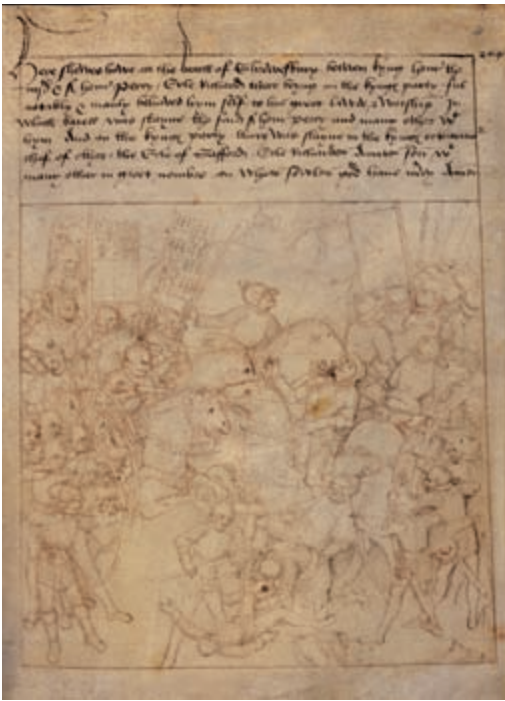 Here shewes howe at the batell of Shrewesbury between kyng Henr the
iiijth & Sr Henr Percy Erle Richard there beyng on the kynges party ful
notably & manly behaved hym self to his gret laude & worship In
which batell was slayne the said Sr Henr Percy and many other wt
hym And on the kynges party there was slayne in the kynges
chef of other the Erle of Stafford Erle Richardes Auntes son wt
many other in grete nombre on whos soules god have mercy Amen